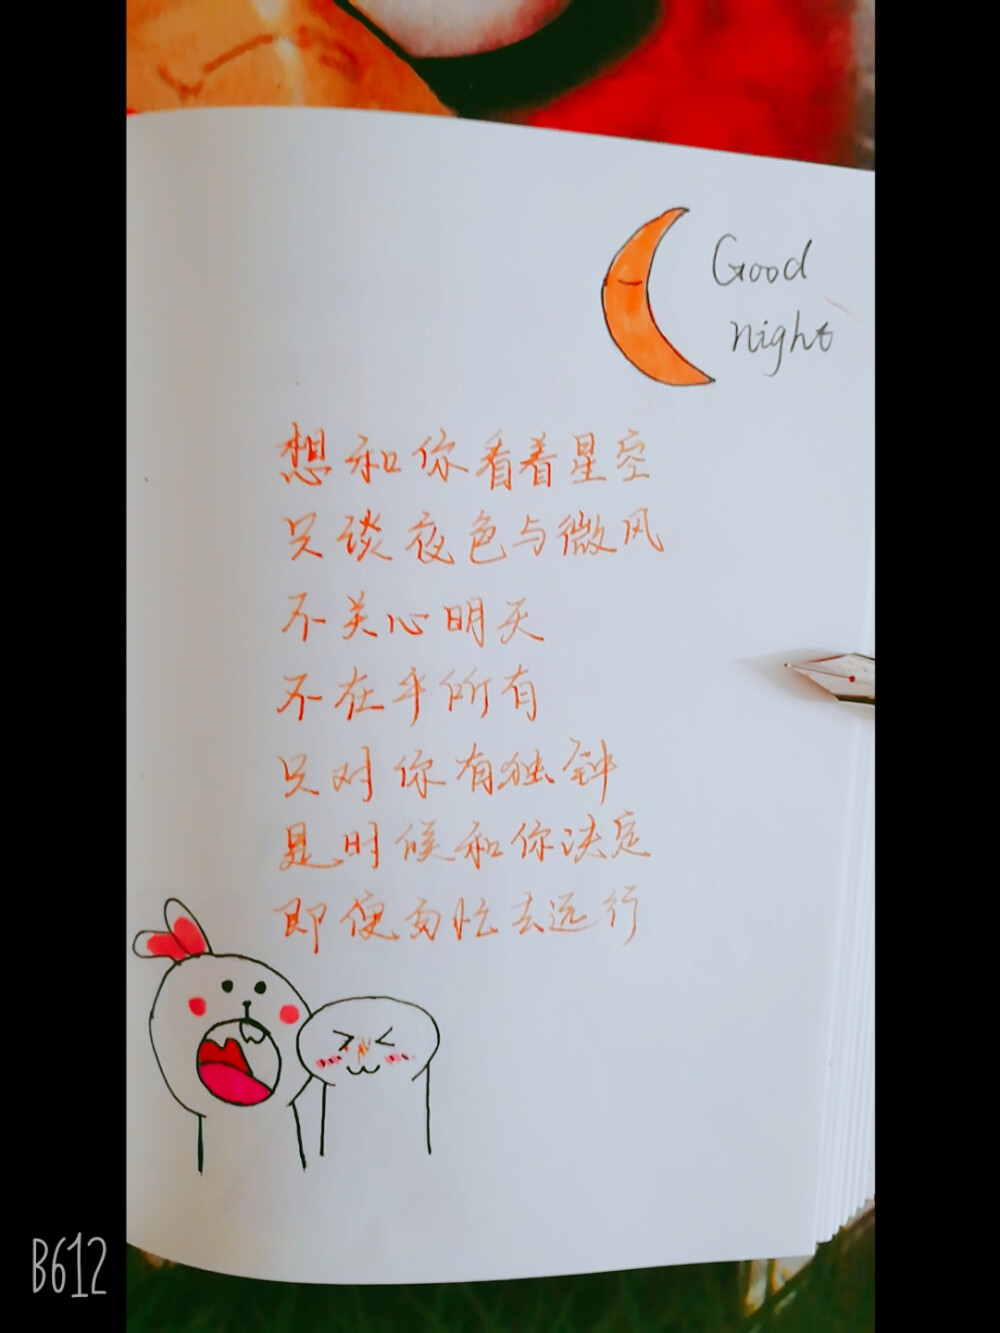 Good
night
想和你看着星空
只谈夜色与微风
不关心明天
不在乎所有
只对你有独钟
是时候和你决定
即便匆忙去远行
B612